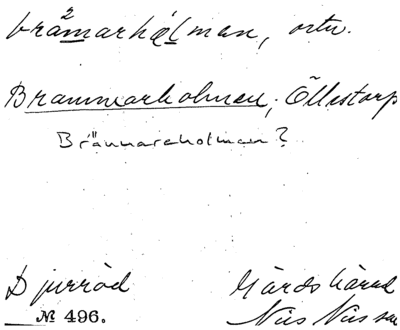 brämarhælman, ortn.
Brammarholman; Öllestorp
Brännareholman?
Djurröd Gärds härad
№ 496. Nils Nilsson